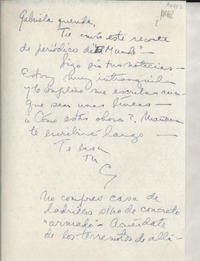 Gabriela querida,
Te envio este recorte
de periódico de "El Mundo".
Sigo sin tus noticias -
Estoy muy intranquil
y te suplico me escribas aun-
que sean unas líneas -
Como estas ahora?. Mañana
te escribiré largo -
Te besa
tu
G
No compres casa de
ladrillos sino de concreto
"armado" - Acuérdate
de los terremotos de allá -